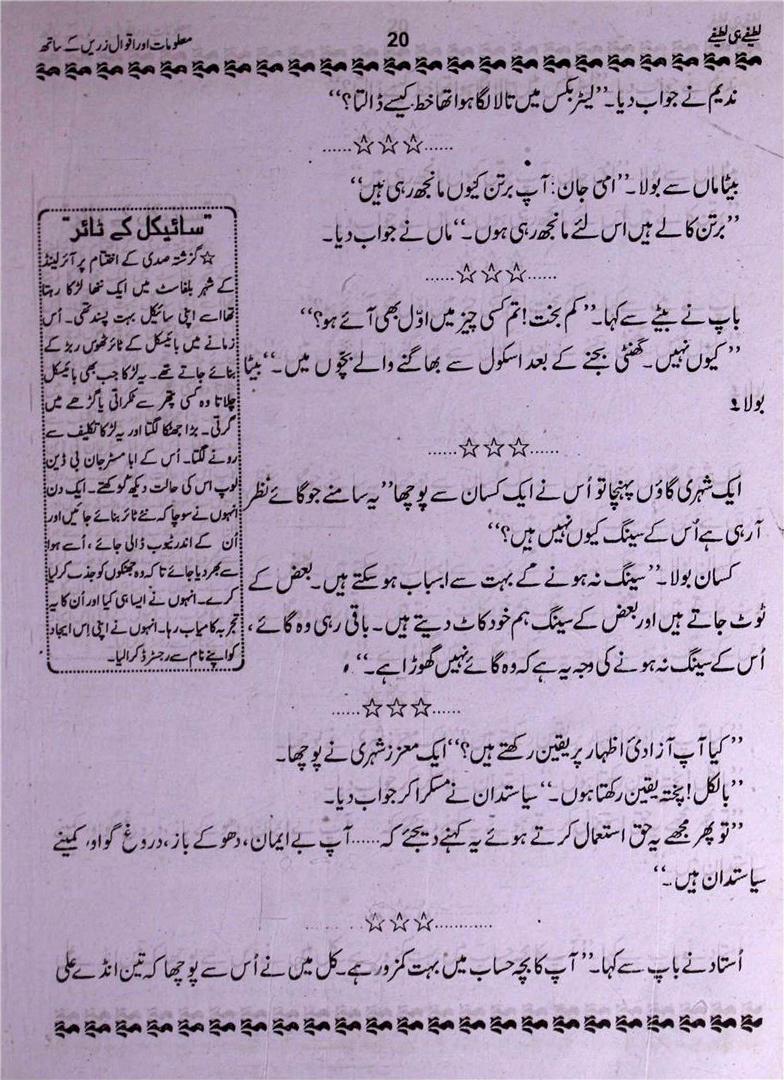 لطیفے ہی لطیفے
20
معلومات اور اقوال زریں کے ساتھ
ندیم نے جواب دیا۔ ’’لیٹر بکس میں تالا لگا ہوا تھا خط کیسے ڈالتا؟‘‘
......☆☆☆......
بیٹا ماں سے بولا۔ ’’امی جان: آپ برتن کیوں مانجھ رہی ہیں‘‘
’’برتن کالے ہیں اس لئے مانجھ رہی ہوں۔‘‘ ماں نے جواب دیا۔
......☆☆☆......
باپ نے بیٹے سے کہا۔ ’’کم بخت! تم کسی چیز میں اوّل بھی آئے ہو؟‘‘
’’کیوں نہیں۔ گھنٹی بجنے کے بعد اسکول سے بھاگنے والے بچوں میں۔‘‘ بیٹا
بولا۔
......☆☆☆......
ایک شہری گاؤں پہنچا تو اُس نے ایک کسان سے پوچھا ’’یہ سامنے جو گائے نظر
آ رہی ہے اُس کے سینگ کیوں نہیں ہیں؟‘‘
کسان بولا۔ ’’سینگ نہ ہونے کے بہت سے اسباب ہو سکتے ہیں۔ بعض کے
ٹوٹ جاتے ہیں اور بعض کے سینگ ہم خود کاٹ دیتے ہیں۔ باقی رہی وہ گائے،
اُس کے سینگ نہ ہونے کی وجہ یہ ہے کہ وہ گائے نہیں گھوڑا ہے۔‘‘
......☆☆☆......
’’کیا آپ آزادیٔ اظہار پر یقین رکھتے ہیں؟‘‘ ایک معزز شہری نے پوچھا۔
’’بالکل! پختہ یقین رکھتا ہوں۔‘‘ سیاستدان نے مسکرا کر جواب دیا۔
’’تو پھر مجھے یہ حق استعمال کرتے ہوئے یہ کہنے دیجئے کہ...... آپ بے ایمان، دھوکے باز، دروغ گو اور کمینے
سیاستدان ہیں۔‘‘
...........☆☆☆......
اُستاد نے باپ سے کہا۔ ’’آپ کا بچہ حساب میں بہت کمزور ہے۔ کل میں نے اُس سے پوچھا کہ تین انڈے علی
"سائیکل کے ٹائر"
☆ گزشتہ صدی کے اختتام پر آئرلینڈ
کے شہر بلفاسٹ میں ایک ننھا لڑکا رہتا
تھا اسے اپنی سائیکل بہت پسند تھی۔ اُس
زمانے میں بائیکل کے ٹائر ٹھوس ربڑ کے
بنائے جاتے تھے۔ یہ لڑکا جب بھی بائیکل
چلاتا وہ کسی پتھر سے ٹکراتی یا گڑھے میں
گرتی۔ بڑا جھٹکا لگتا اور یہ لڑکا تکلیف سے
رونے لگتا۔ اُس کے ابا مسٹر جان بی ڈین
لوپ اس کی حالت دیکھ کو کھتے۔ ایک دن
انہوں نے سوچا کہ نئے ٹائر بنائے جائیں اور
اُن کے اندر ٹیوب ڈالی جائے، اُسے ہوا
سے بھر دیا جائے تاکہ وہ جھٹکوں کو جذب کر لیا
کرے۔ انہوں نے ایسا ہی کیا اور اُن کا یہ
تجربہ کامیاب رہا۔ انہوں نے اپنی اِس ایجاد
کو اپنے نام سے رجسٹرڈ کرا لیا۔